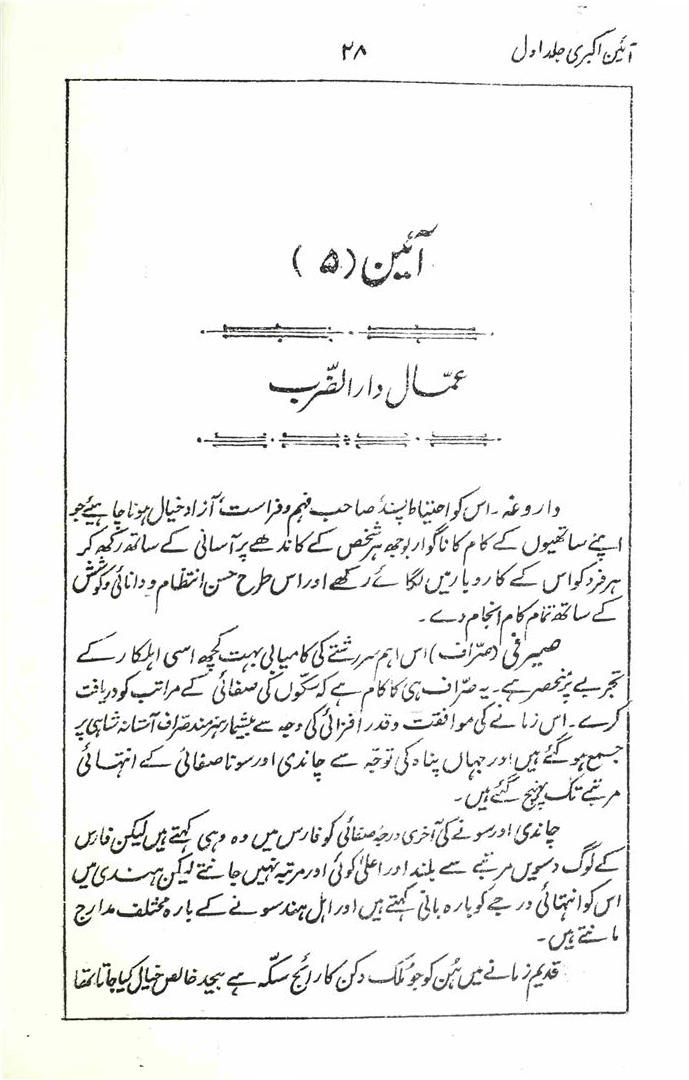 آئین اکبری جلد اول
۲۸
آئین (۵)
عمّال دار الضّرب
داروغہ ۔ اس کو احتیاط پسند صاحب فہم و فراست، آزاد خیال ہونا چاہیئے جو
اپنے ساتھیوں کے کام کا ناگوار بوجھ ہر شخص کے کاندھے پر آسانی کے ساتھ رکھ کر
ہر فرد کو اس کے کاروبار میں لگائے رکھے اور اس طرح حسن انتظام و دانائی و کوشش
کے ساتھ تمام کام انجام دے ۔
صیرفی (صرّاف) اس اہم سررشتے کی کامیابی بہت کچھ اسی اہلکار کے
تجربے پر منحصر ہے ۔ یہ صرّاف ہی کا کام ہے کہ سکّوں کی صفائی کے مراتب کو دریافت
کرے ۔ اس زمانے کی موافقت و قدر افزائی کی وجہ سے بیشمار ہنرمند صرّاف آستانہ شاہی پر
جمع ہو گئے ہیں اور جہاں پناہ کی توجّہ سے چاندی اور سونا صفائی کے انتہائی
مرتبے تک پہنچ گئے ہیں ۔
چاندی اور سونے کی آخری درجۂ صفائی کو فارس میں دہ دہی کہتے ہیں لیکن فارس
کے لوگ دسویں مرتبے سے بلند اور اعلیٰ کوئی اور مرتبہ نہیں جانتے لیکن ہندی میں
اس کو انتہائی درجے کو بارہ بانی کہتے ہیں اور اہل ہند سونے کے بارہ مختلف مدارج
مانتے ہیں ۔
قدیم زمانے میں ہُن کو جو مُلک دکن کا رائج سکّہ ہے بیحد خالص خیال کیا جاتا تھا